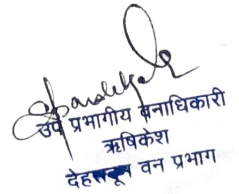 उप प्रभागीय वनाधिकारी
ऋषिकेश
देहरादून वन प्रभाग